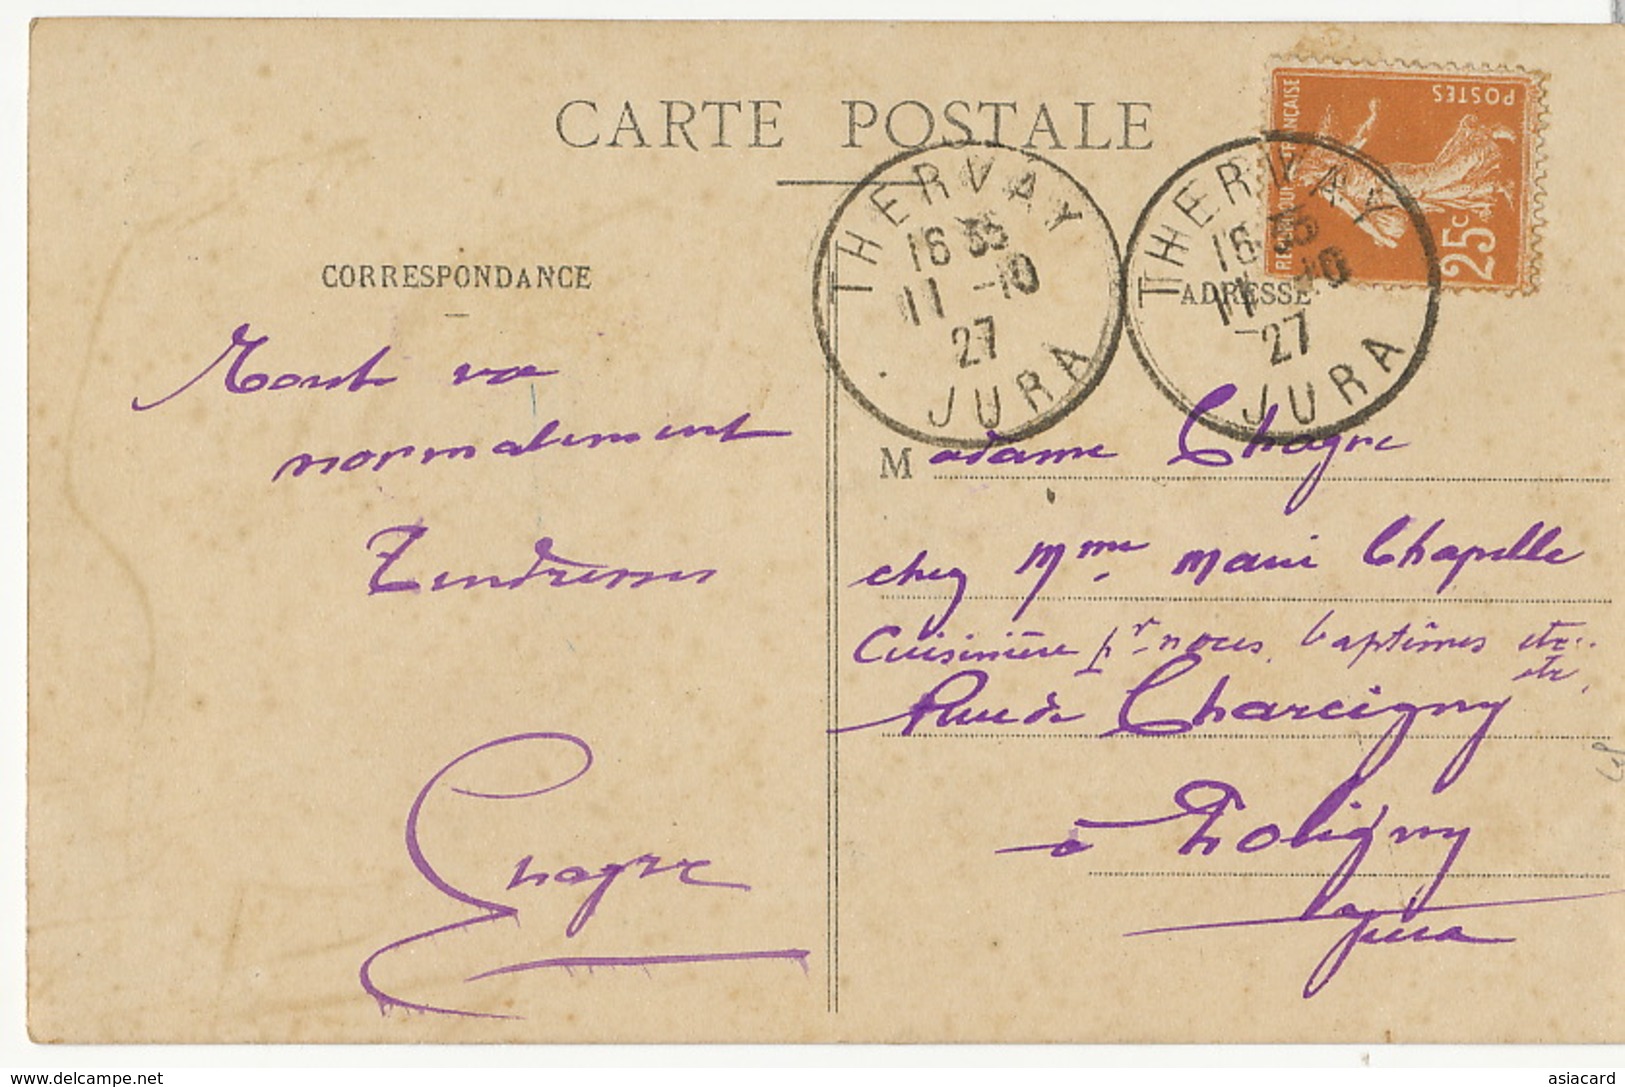 CARTE POSTALE
CORRESPONDANCE
Tout va
normalement
Tendresses
Chagre
THERVAY
16 35
11 -10
27
JURA
THERVAY
16 35
11 -10
27
JURA
REPUBLIQUE FRANÇAISE
POSTES
25c
ADRESSE
Madame Chagre
chez Mme Marie Chapelle
Cuisinière pr noces, baptêmes etc..
etc.
Rue de Charcigny
à Poligny
Jura
www.delcampe.net
asiacard